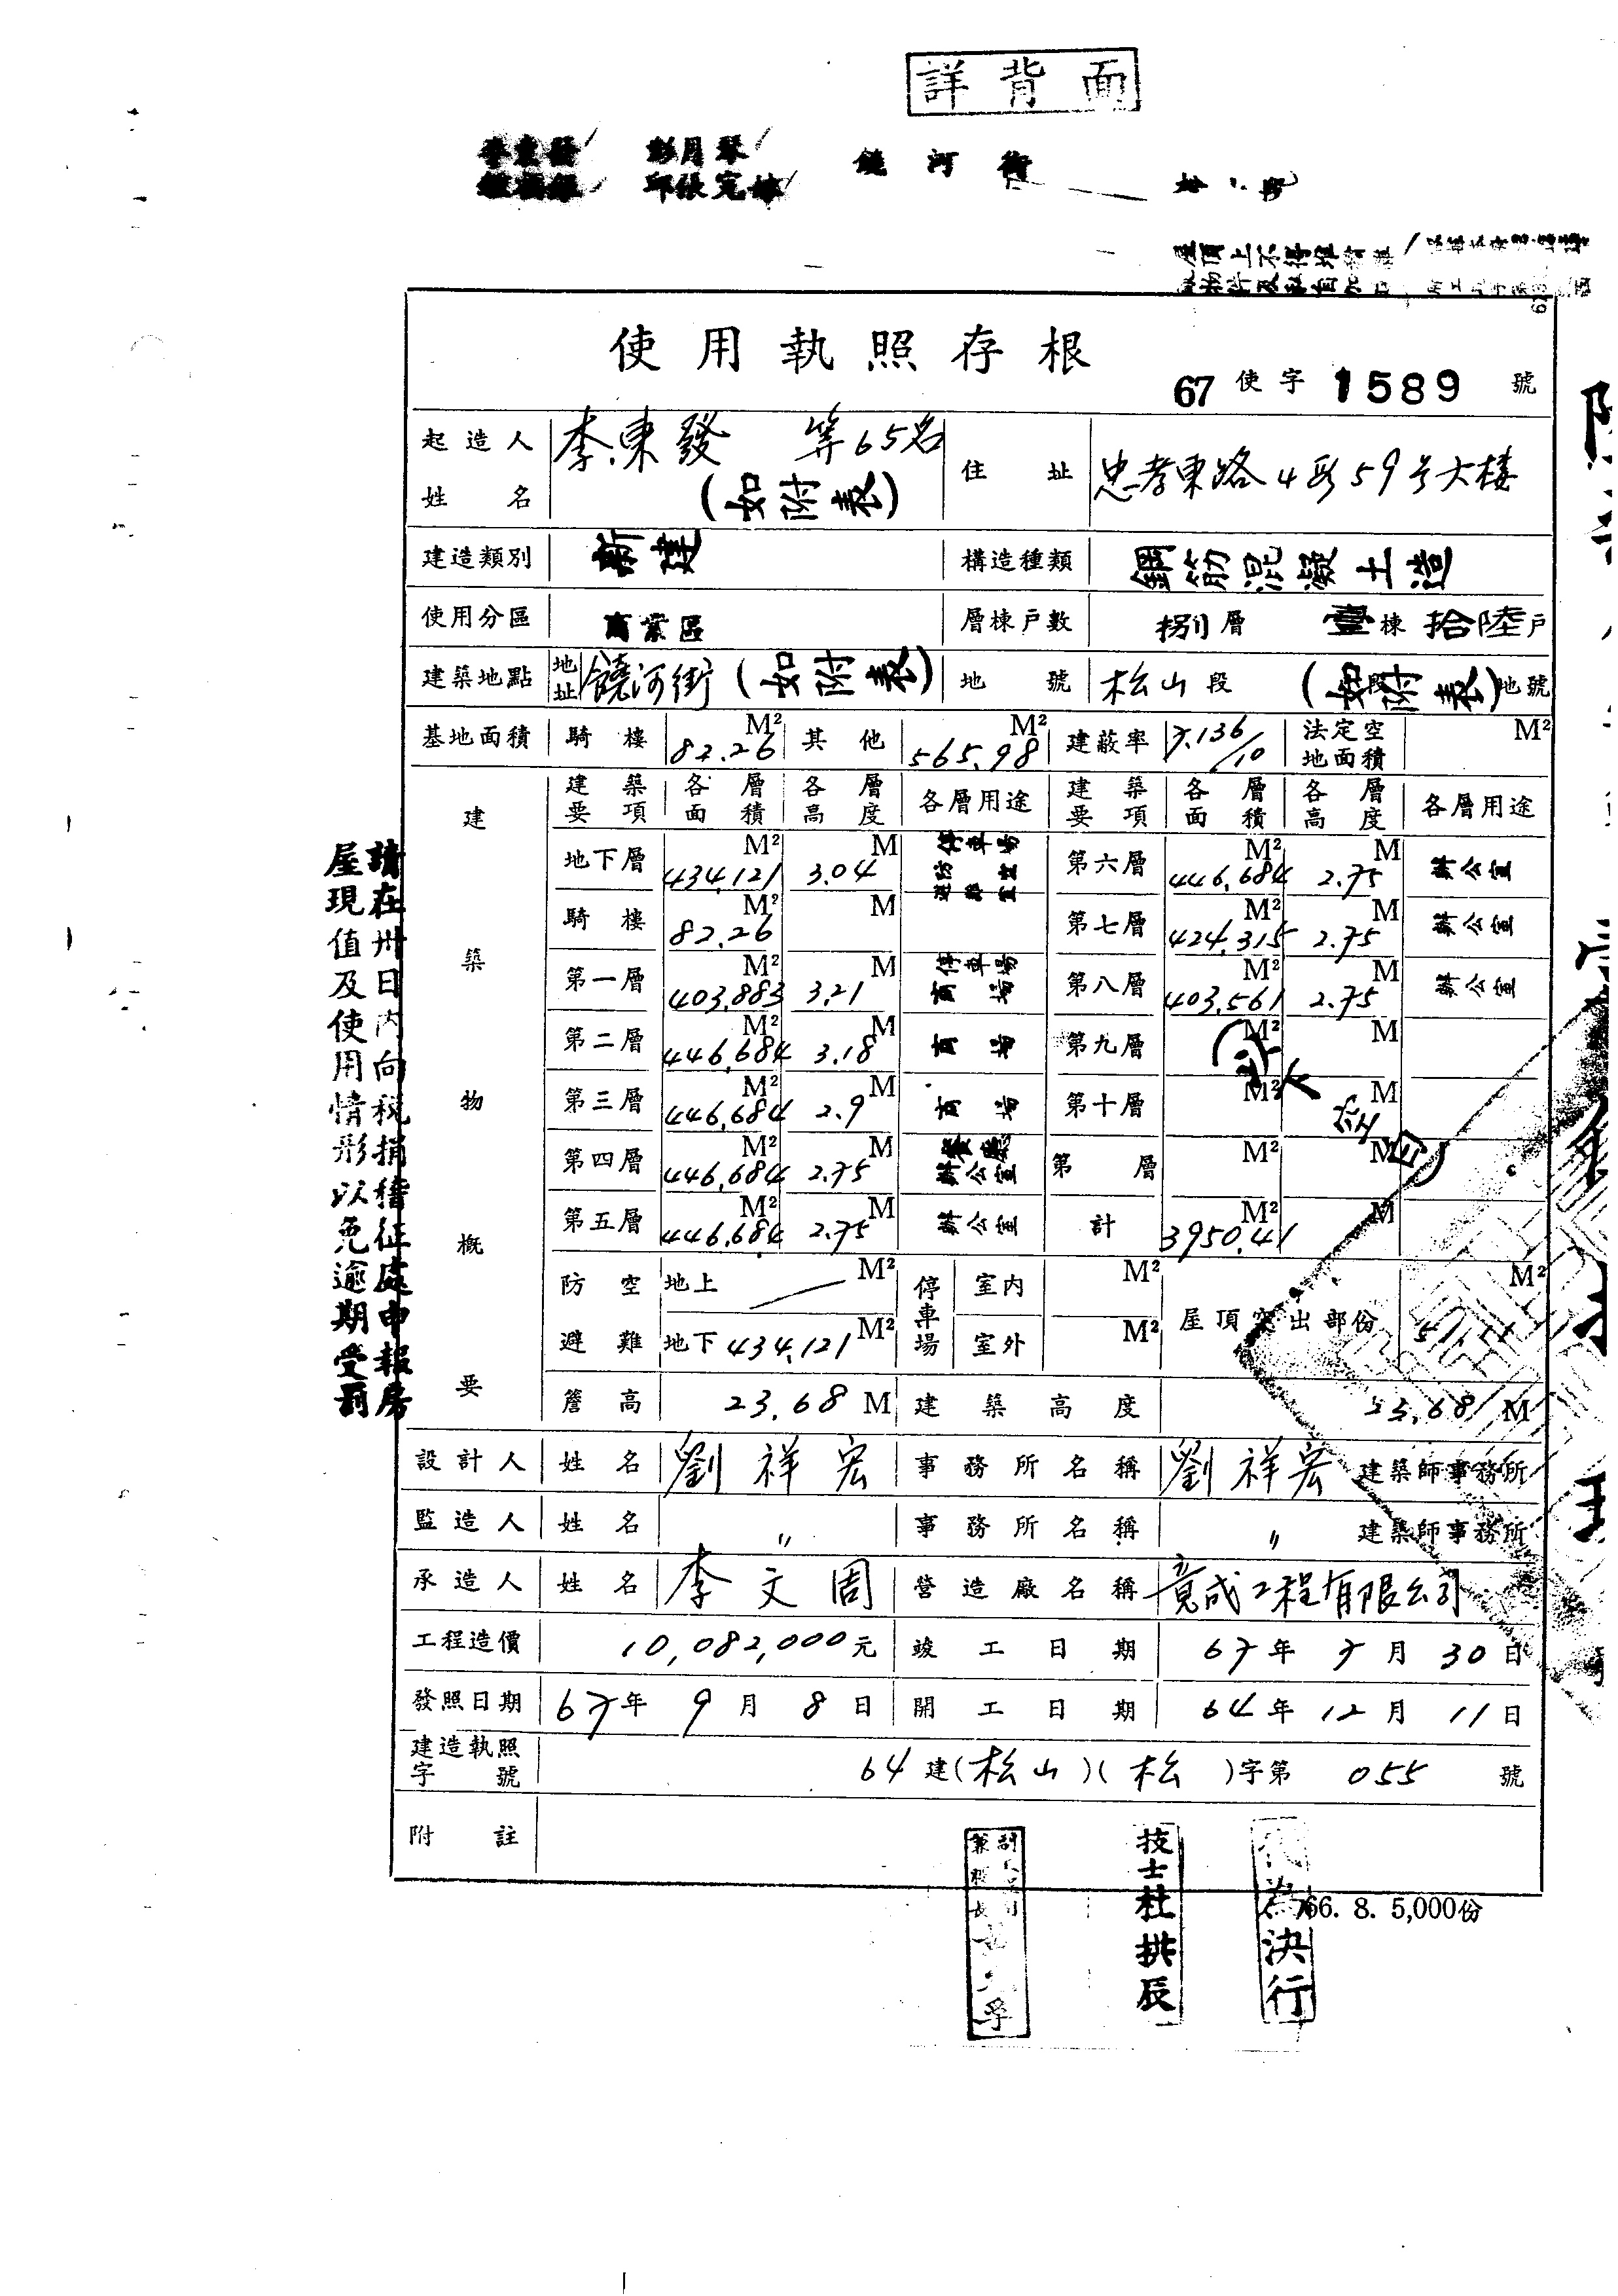 詳背面
彭月琴
饒河街
屋頂上不得堆
使用執照存根
67 使字 1589 號
起造人姓名 李東發 等65名 (如附表) 住址 忠孝東路4段59号大樓
建造類別 新建 構造種類 鋼筋混凝土造
使用分區 商業區 層棟戶數 捌層 壹棟 拾陸戶
建築地點 地址 饒河街(如附表) 地號 松山段 段(如附表)地號
基地面積 騎樓 82.26 M² 其他 565.98 M² 建蔽率 7.136/10 法定空地面積 M²
建築物概要
建築要項 各層面積 各層高度 各層用途 建築要項 各層面積 各層高度 各層用途
地下層 434.121 M² 3.04 M 停車場 防空避難室 第六層 446.684 M² 2.75 M 辦公室
騎樓 82.26 M² M 第七層 424.315 M² 2.75 M 辦公室
第一層 403.883 M² 3.21 M 停車場 商場 第八層 403.561 M² 2.75 M 辦公室
第二層 446.684 M² 3.18 M 商場 第九層 M² M
第三層 446.684 M² 2.9 M 商場 第十層 M² M
第四層 446.684 M² 2.75 M 餐廳 辦公室 第 層 M² M
第五層 446.684 M² 2.75 M 辦公室 計 3950.41 M² M
(以下空白)
防空避難 地上 M² 停車場 室內 M² 屋頂突出部份 M²
地下 434.121 M² 室外 M²
簷高 23.68 M 建築高度 23.68 M
設計人 姓名 劉祥宏 事務所名稱 劉祥宏 建築師事務所
監造人 姓名 〃 事務所名稱 〃 建築師事務所
承造人 姓名 李文周 營造廠名稱 竟成工程有限公司
工程造價 10,082,000元 竣工日期 67年7月30日
發照日期 67年9月8日 開工日期 64年12月11日
建造執照字號 64建(松山)(松)字第 055 號
附註
請在卅日內向稅捐稽征處申報房
屋現值及使用情形以免逾期受罰
技士杜拱辰
代為決行
66. 8. 5,000份